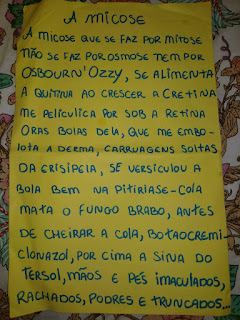 A MICOSE
A MICOSE QUE SE FAZ POR MITOSE
NÃO SE FAZ POR OSMOSE TEM POR
OSBOURN'OZZY, SE ALIMENTA
A QUITINA AO CRESCER A CRETINA
ME PELICULICA POR SOB A RETINA
ORAS BOIAS DELA, QUE ME EMBO-
LOTA A DERMA, CARRUAGENS SOLTAS
DA CRISIPELA, SE VERSICULOU A
BOLA BEM NA PITIRIASE-COLA
MATA O FUNGO BRABO, ANTES
DE CHEIRAR A COLA, BOTAOCREMI
CLONAZOL, POR CIMA A SINA DO
TERSOL, MÃOS E PÉS IMACULADOS,
RACHADOS, PODRES E TRUNCADOS...